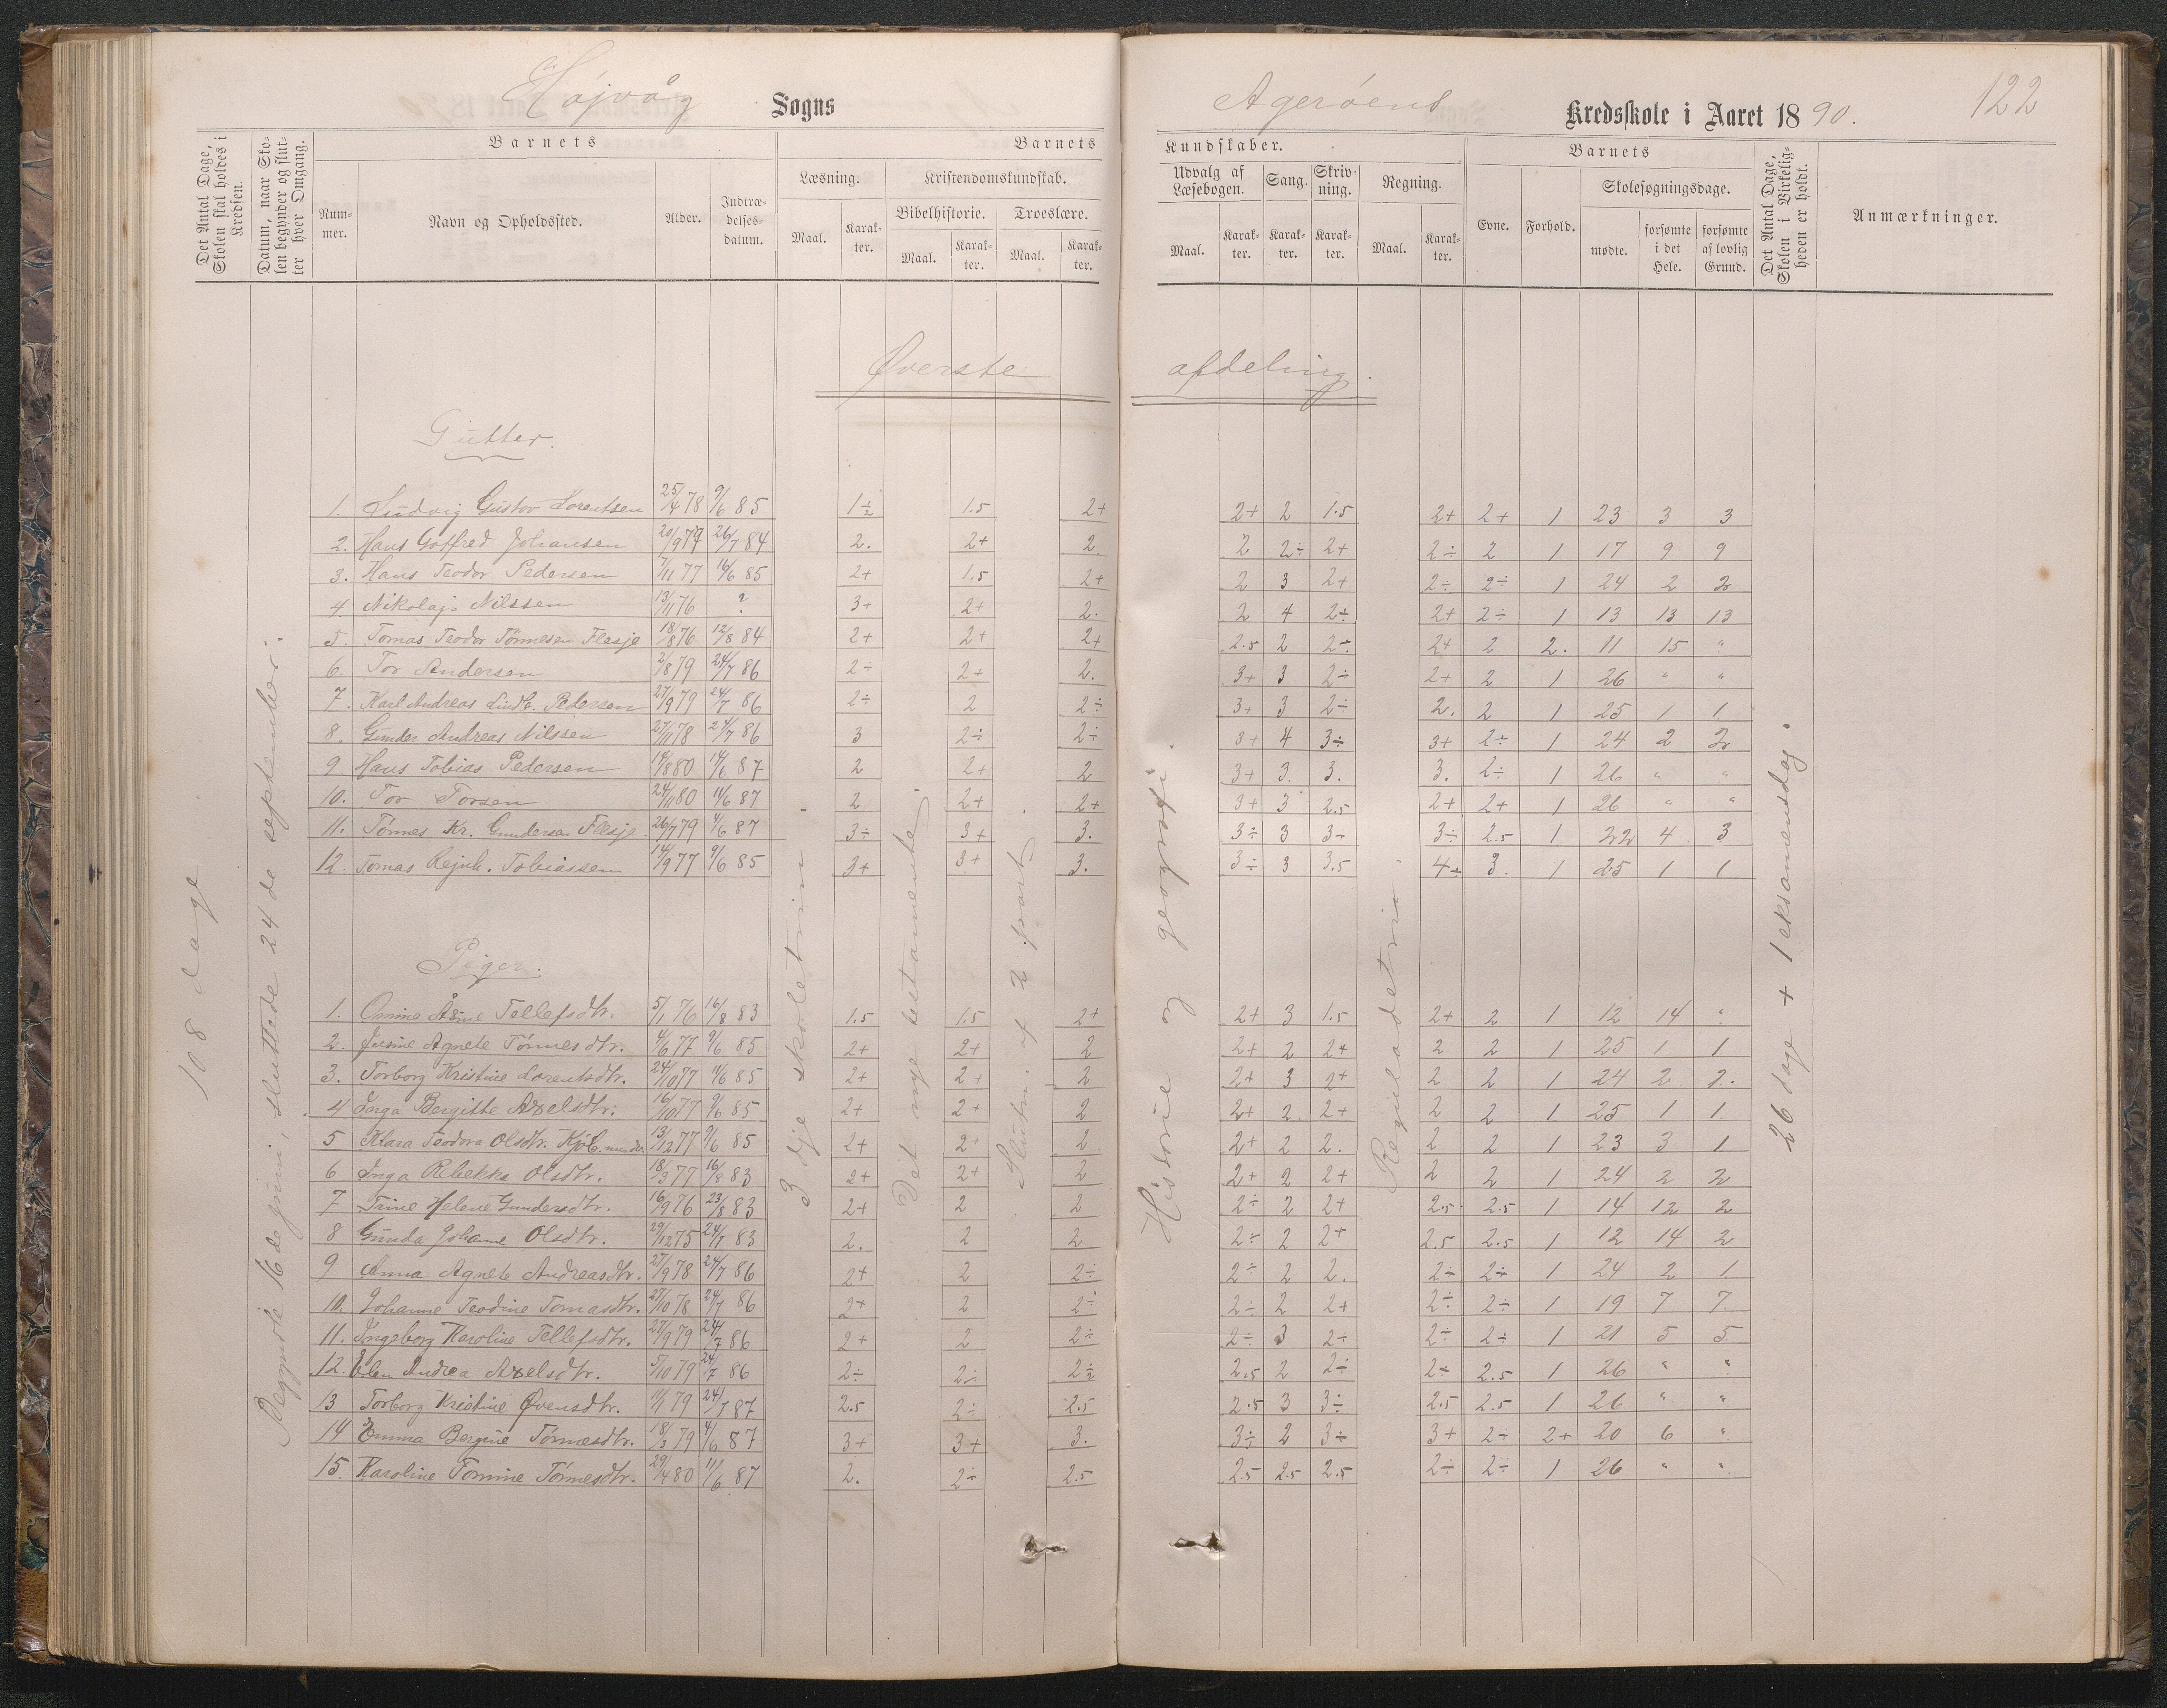 Højvåg Sogns
Agerøens Kredsskole i Aaret 1890.
122
Det Antal Dage, Skolen skal holdes i Kredsen.
Datum, naar Skolen begynder og slutter hver Omgang.
Barnets
Nummer.
Navn og Opholdssted.
Alder.
Indtrædelsesdatum.
Barnets
Læsning.
Maal.
Karakter.
Kristendomskundskab.
Bibelhistorie.
Maal.
Karakter.
Troeslære.
Maal.
Karakter.
Kundskaber.
Udvalg af Læsebogen.
Maal.
Karakter.
Sang.
Karakter.
Skrivning.
Karakter.
Regning.
Maal.
Karakter.
Barnets
Evne.
Forhold.
Skolesøgningsdage.
mødte.
forsømte i det Hele.
forsømte af lovlig Grund.
Det Antal Dage, Skolen i Virkeligheden er holdt.
Anmærkninger.
Øverste afdeling.
108 dage
Begyndte 16de juni, sluttede 24de september.
3dje skoletrin.
Det nye testamente.
Slutn. af 2 part.
Historie og geografi.
Reguladetri.
26 dage + 1 eksamensdag.
Gutter.
1. Ludvig Gustav Lorentsen 25/4 78 9/6 85 1÷ 1.5 2+ 2+ 2 1.5 2+ 2+ 1 23 3 3
2. Hans Gotfred Johansen 20/9 77 26/7 84 2. 2+ 2. 2 2÷ 2+ 2÷ 2 1 17 9 9
3. Hans Teodor Pedersen 7/11 77 16/6 85 2+ 1.5 2+ 2 3 2+ 2÷ 2÷ 1 24 2 2
4. Nikolaj Nilssen 13/11 76 ? 3+ 2+ 2. 2 4 2÷ 2+ 2÷ 1 13 13 13
5. Tomas Teodor Tørnesen Flesje 18/8 76 12/8 84 2+ 2+ 2+ 2.5 2 2÷ 2+ 2 2. 11 15 "
6. Tor Andersen 2/8 79 24/7 86 2÷ 2+ 2. 3+ 3 2÷ 2+ 2 1 26 " "
7. Karl Andreas Lindb. Pedersen 27/9 79 24/7 86 2÷ 2 2÷ 3+ 3 2÷ 2. 2 1 25 1 1
8. Gunder Andreas Nilssen 27/11 78 24/7 86 3 2÷ 2÷ 3+ 4 3÷ 3+ 2÷ 1 24 2 2
9. Hans Tobias Pedersen 14/8 80 14/6 87 2 2+ 2 3+ 3. 3. 3. 2÷ 1 26 " "
10. Tor Torsen 24/11 80 11/6 87 2 2+ 2+ 3+ 3 2.5 2+ 2+ 1 26 " "
11. Tørnes Kr. Gundersen Flesje 26/7 79 4/6 87 3÷ 3+ 3. 3÷ 3 3÷ 3÷ 2.5 1 22 4 3
12. Tomas Rejnh. Tobiassen 14/9 77 9/6 85 3+ 3+ 3. 3÷ 3 3.5 4÷ 3. 1 25 1 1
Piger.
1. Omine Åsine Tellefsdtr. 5/1 76 16/8 83 1.5 1.5 2+ 2+ 3 1.5 2+ 2 1 12 14 "
2. Agnete Tørnesdtr. 4/6 77 9/6 85 2+ 2+ 2 2+ 2 2+ 2 2 1 25 1 1
3. Torborg Kristine Lorentsdtr. 24/10 77 11/6 85 2+ 2+ 2 2+ 3 2+ 2 2 1 24 2 2.
4 Inga Bergitte Axelsdtr. 16/10 77 9/6 85 2+ 2+ 2 2+ 2 2+ 2 2 1 25 1 1
5 Klara Teodora Olsdtr. 13/12 77 9/6 85 2+ 2+ 2 2+ 2 2. 2 2 1 23 3 1
6 Inga Rebekka Olsdtr. 18/3 77 16/8 83 2+ 2+ 2 2+ 2 2+ 2 2 1 24 2 2
7 Trine Helene Gundersdtr. 16/9 76 23/8 83 2+ 2 2 2÷ 2 2+ 2.5 2.5 1 14 12 2
8 Gunda Johanne Olsdtr. 29/12 75 24/7 83 2. 2 2 2÷ 2 2+ 2.5 2.5 1 12 14 2
9 Anna Agnete Andreasdtr. 27/9 78 24/7 86 2+ 2 2÷ 2÷ 2 2. 2÷ 2÷ 1 24 2 1
10. Johanne Teodine Tomasdtr. 27/10 78 24/7 86 2+ 2 2÷ 2÷ 2 2+ 2÷ 2÷ 1 19 7 7
11. Ingeborg Karoline Tellefsdtr. 27/9 79 24/7 86 2+ 2 2÷ 2÷ 3 2÷ 2÷ 2÷ 1 21 5 5
12. Elen Andrea Axelsdtr. 5/10 79 24/7 86 2÷ 2÷ 2÷ 2.5 2 2÷ 2÷ 2.5 1 26 " "
13 Torborg Kristine Øvensdtr. 11/1 79 24/7 87 2.5 2÷ 2.5 2.5 3 3÷ 2.5 2.5 1 26 " "
14 Emma Bergine Tørnesdtr. 18/3 79 4/6 87 3+ 3+ 3. 3÷ 2 3÷ 3+ 2÷ 2+ 20 6 "
15. Karoline Tomine Tørnesdtr. 29/4 80 11/6 87 2. 2÷ 2.5 2.5 2.5 2.5 2÷ 2÷ 1 26 " "